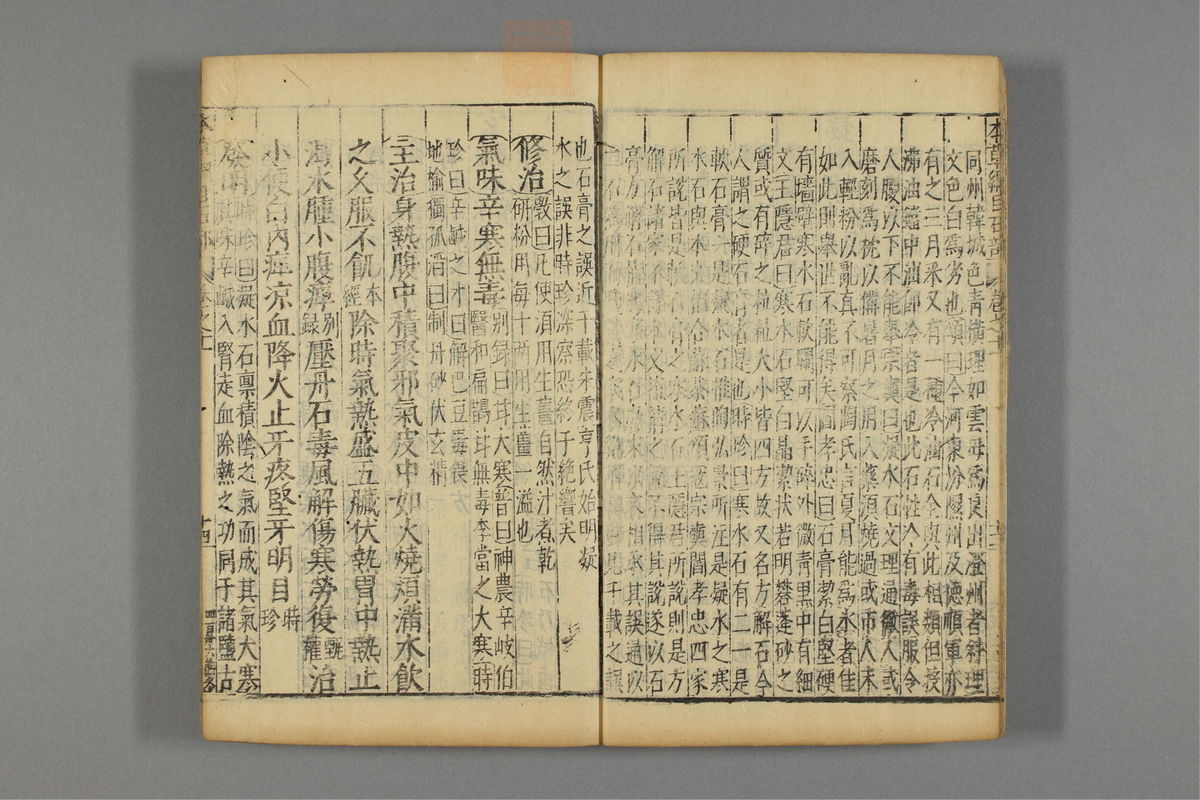 同州韓城色青黃理如雲母爲良出澄州者斜理
文色白爲劣也頌曰今河東汾隰州及德順軍亦
有之三月采又有一種冷油石全與此相類但投
沸油鐺中油卽冷者是也此石性冷有毒誤服令
人腰以下不能舉宗奭曰凝水石文理通徹人或
磨刻爲枕以備暑月之用入藥須燒過或市人末
入輕粉以亂真不可察陶氏言夏月能爲冰者佳
如此則舉世不能得矣閻孝忠曰石膏潔白堅硬
有墻壁寒水石軟爛可以手碎外微青黑中有細
文王隱君曰寒水石堅白晶潔狀若明礬蓬砂之
質或有碎之粒粒大小皆四方故又名方解石今
人謂之硬石膏者是也時珍曰寒水石有二一是
軟石膏一是凝水石惟陶弘景所注是凝水之寒
水石與本文相合蘇恭蘇頌寇宗奭閻孝忠四家
所說皆是軟石膏之寒水石王隱君所說則是方
解石諸家不詳本文
也石膏之誤近千載朱震亨氏始明凝
水之誤非時珍深察恐終于絕響矣
修治 斅曰凡使須用生薑自然汁煮乾
研粉用每十兩用生薑一鎰也
氣味辛寒無毒 別錄曰甘大寒普曰神農辛岐伯
醫和扁鵲甘無毒李當之大寒時
珍曰辛鹹之才曰解巴豆毒畏
地榆獨孤滔曰制丹砂伏玄精
主治身熱腹中積聚邪氣皮中如火燒煩滿水飲
之久服不飢 本經 除時氣熱盛五臟伏熱胃中熱止
渴水腫小腹痺 別錄 壓丹石毒風解傷寒勞復 甄權 治
小便白內痺涼血降火止牙疼堅牙明目 時珍
發明 時珍曰凝水石稟積陰之氣而成其氣大寒
其味辛鹹入腎走血除熱之功同于諸鹽古
本草綱目石部